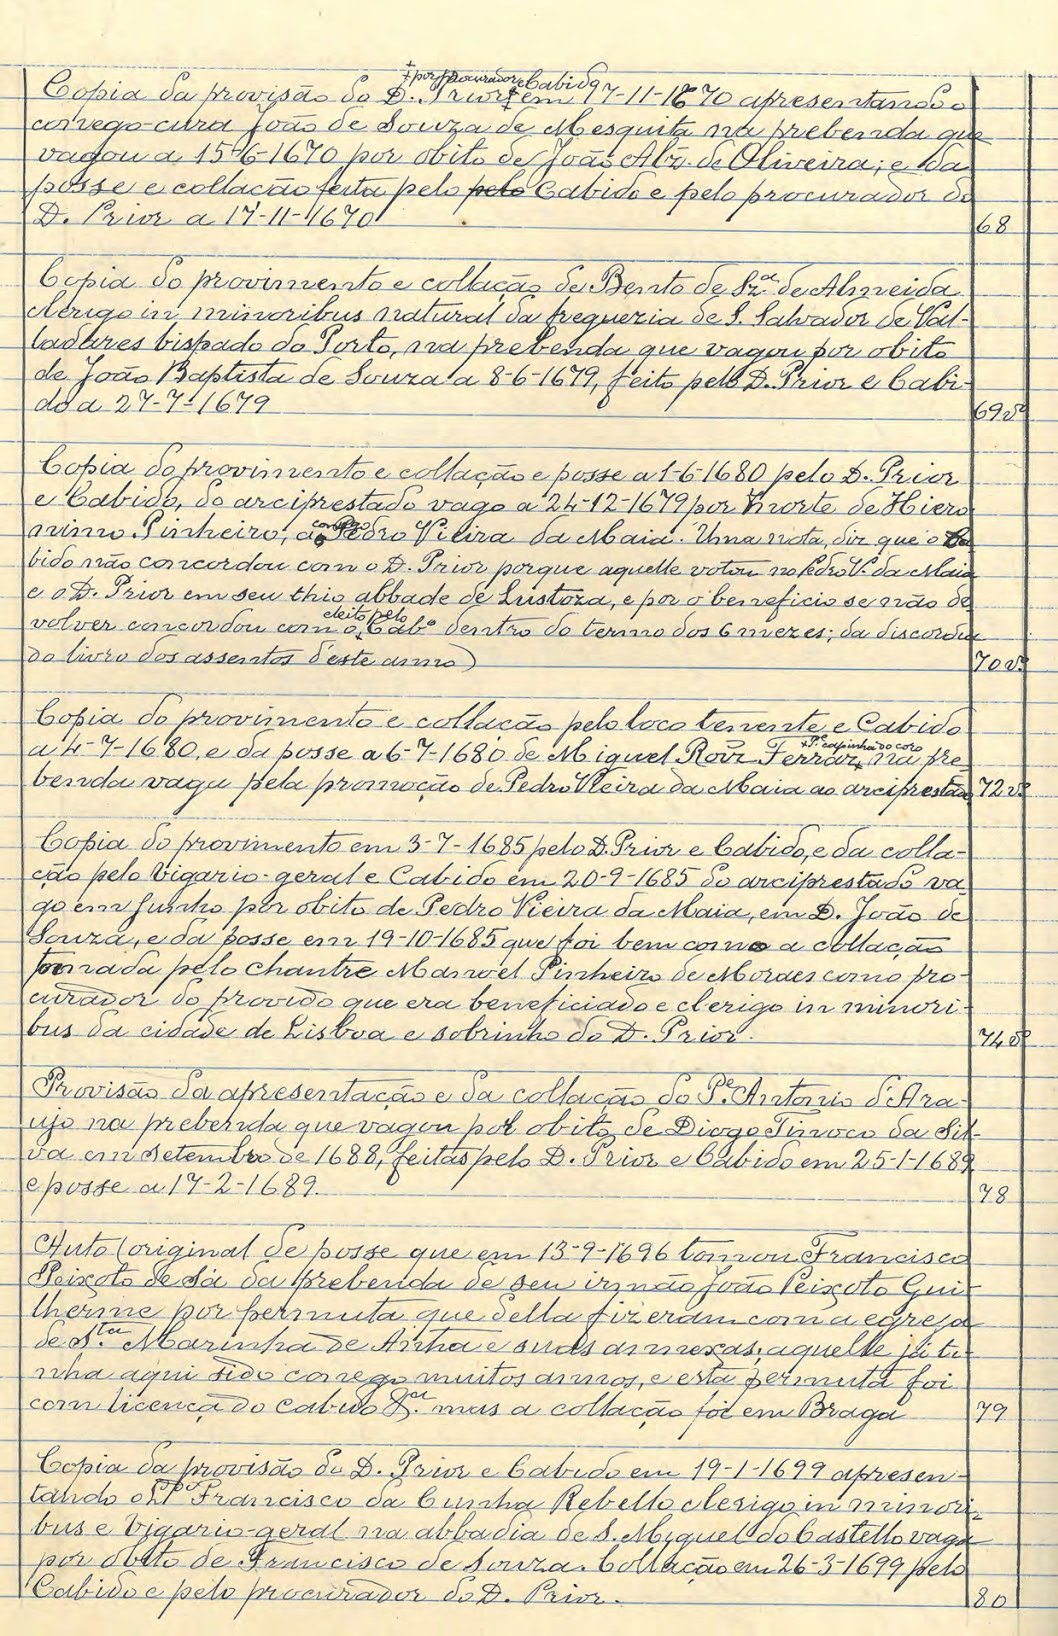 ‡ por procurador e Cabido
Copia da provisão do D. Prior ‡ em 17-11-1670 apresentando o
conego-cura João de Souza de Mesquita na prebenda que
vagou a 15-6-1670 por obito de João Alz. de Oliveira; e da
posse e collação feita pelo pelo Cabido e pelo procurador do
D. Prior a 17-11-1670
68
Copia do provimento e collação de Bento de Sz.ª de Almeida
clerigo in minoribus natural da freguezia de S. Salvador de Val-
ladares bispado do Porto, na prebenda que vagou por obito
de João Baptista de Souza a 8-6-1679, feito pelo D. Prior e Cabi-
do a 27-7-1679
69 vº
Copia do provimento e collação e posse a 1-6-1680 pelo D. Prior
e Cabido, do arciprestado vago a 24-12-1679 por morte de Hiero
nimo Pinheiro, a conego Pedro Vieira da Maia. Uma nota diz que o Ca
bido não concordou com o D. Prior porque aquelle votou no Pedro V. da Maia
e o D. Prior em seu thio abbade de Lustoza, e por o beneficio se não de
volver concordou com o eleito pelo Cabº dentro do termo dos 6 mezes; da discordia
do livro dos assentos d'este anno)
70 vº
Copia do provimento e collação pelo loco tenente e Cabido
a 4-7-1680, e da posse a 6-7-1680 de Miguel Roiz Ferraz, Pe. capinha do coro na pre
benda vaga pela promoção de Pedro Vieira da Maia ao arciprestado
72 vº
Copia do provimento em 3-7-1685 pelo D. Prior e Cabido, e da colla-
ção pelo Vigario-geral e Cabido em 20-9-1685 do arciprestado va
go em Junho por obito de Pedro Vieira da Maia, em D. João de
Souza, e da posse em 19-10-1685 que foi bem como a collação
tomada pelo chantre Manoel Pinheiro de Moraes como pro-
curador do provido que era beneficiado e clerigo in minori-
bus da cidade de Lisboa e sobrinho do D. Prior.
74 vº
Provisão da apresentação e da collação do Pe. Antonio d'Ara-
ujo na prebenda que vagou por obito de Diogo Tinoco da Sil-
va em setembro de 1688, feitas pelo D. Prior e Cabido em 25-1-1689
e posse a 17-2-1689.
78
Auto (original de posse que em 13-9-1696 tomou Francisco
Peixoto de Sá da prebenda de seu irmão João Peixoto Gui-
lherme por permuta que della fizeram com a egreja
de S.ta Marinha de Anha e suas annexas; aquelle já ti-
nha aqui sido conego muitos annos, e esta permuta foi
com licença do Cabido &.ª mas a collação foi em Braga
79
Copia da provisão do D. Prior e Cabido em 19-1-1699 apresen-
tando o Ldo Francisco da Cunha Rebello clerigo in minori-
bus e Vigario-geral na abbadia de S. Miguel do Castello vaga
por obito de Francisco de Souza. Collação em 26-3-1699 pelo
Cabido e pelo procurador do D. Prior.
80